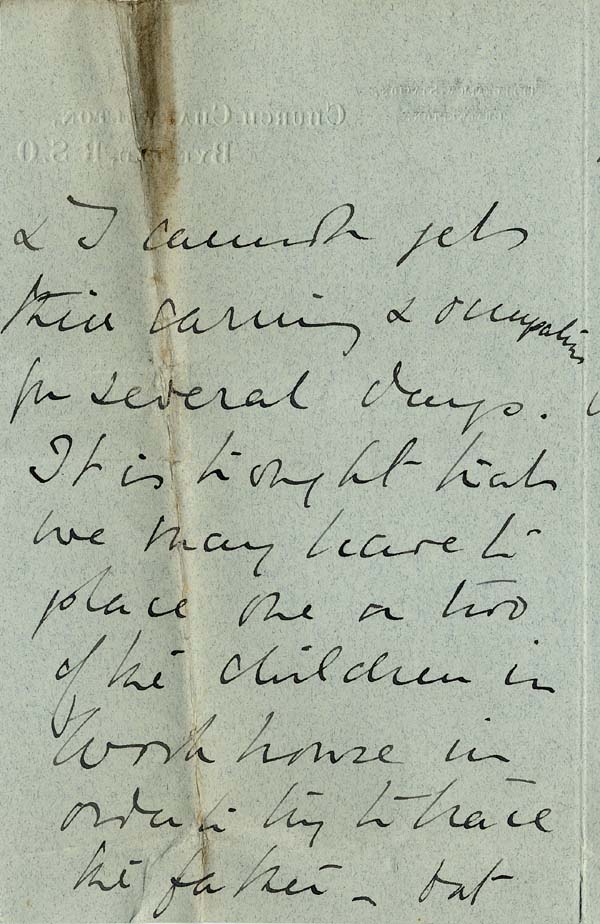 & I cannot get
their earning & occupations
for several days.
It is thought that
we may have to
place one or two
of the children in
Workhouse in
order to try to trace
the father – but